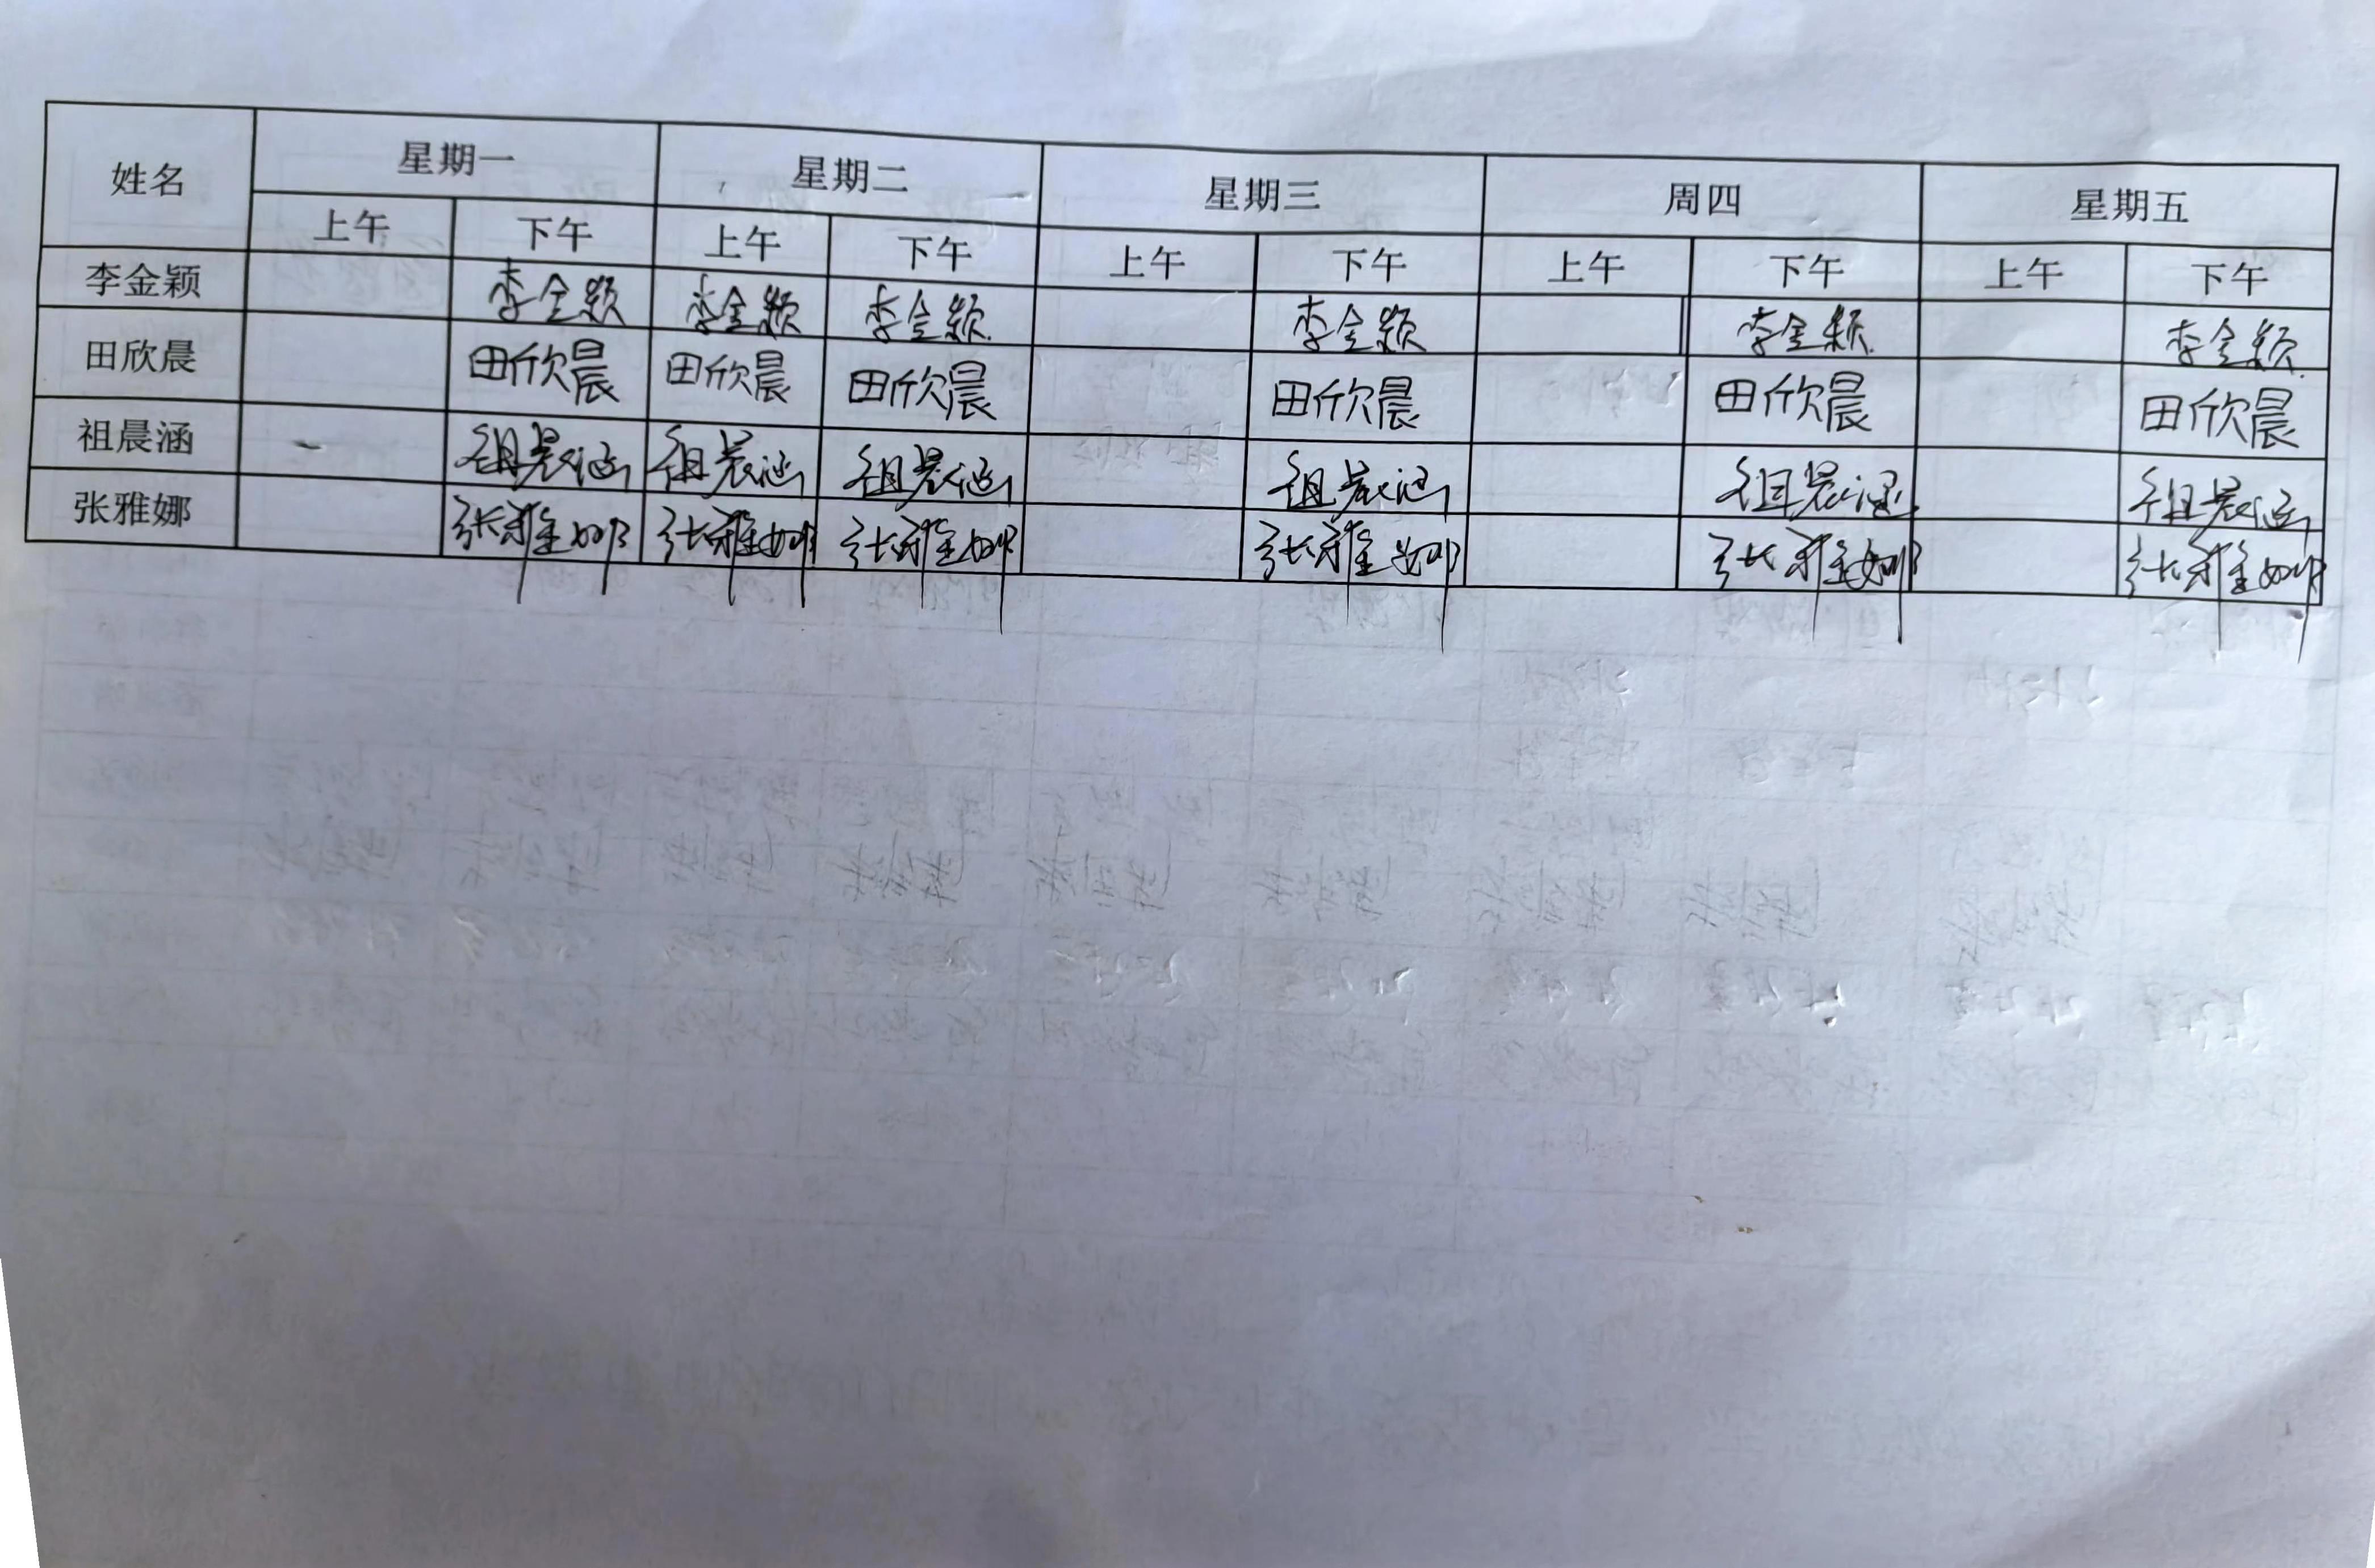 姓名 星期一 星期二 星期三 周四 星期五
上午 下午 上午 下午 上午 下午 上午 下午 上午 下午
李金颖 李金颖 李金颖 李金颖 李金颖 李金颖 李金颖
田欣晨 田欣晨 田欣晨 田欣晨 田欣晨 田欣晨 田欣晨
祖晨涵 祖晨涵 祖晨涵 祖晨涵 祖晨涵 祖晨涵 祖晨涵
张雅娜 张雅娜 张雅娜 张雅娜 张雅娜 张雅娜 张雅娜